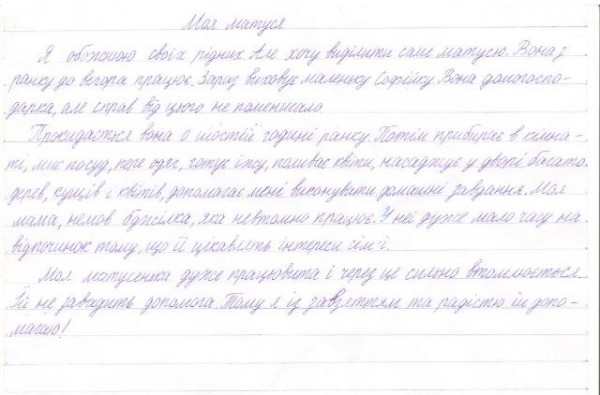 Моя матуся
Я обожнюю своїх рідних. Але хочу виділити саме матусю. Вона з
ранку до вечора працює. Зараз виховує маленьку Софійку. Вона домогоспо-
дарка, але справ від цього не поменшало.
Прокидається вона о шостій годині ранку. Потім прибирає в кімна-
ті, миє посуд, пере одяг, готує їжу, поливає квіти, насаджує у дворі багато
дерев, кущів і квітів, допомагає мені виконувати домашні завдання. Моя
мама, немов бджілка, яка невтомно працює. У неї дуже мало часу на
відпочинок тому, що її цікавлять інтереси сім'ї.
Моя матусенька дуже працьовита і через це сильно втомлюється.
Їй не завадить допомога. Тому я із завзяттям та радістю їй допо-
магаю!